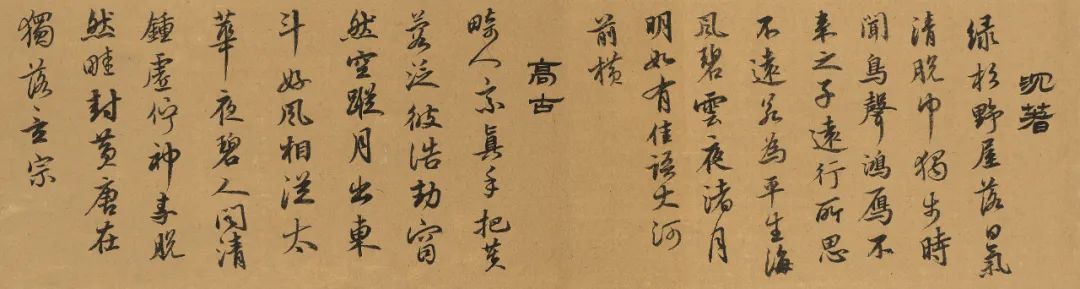 沉著
綠杉野屋落日氣
清脫巾獨步時
聞鳥聲鴻鴈不
來之子遠行所思
不遠若為平生海
風碧雲夜渚月
明如有佳語大河
前橫
高古
畸人乘眞手把芙
蓉泛彼浩劫窅
然空蹤月出東
斗好風相從太
華夜碧人聞清
鍾虛佇神素脫
然畦封黃唐在
獨落玄宗